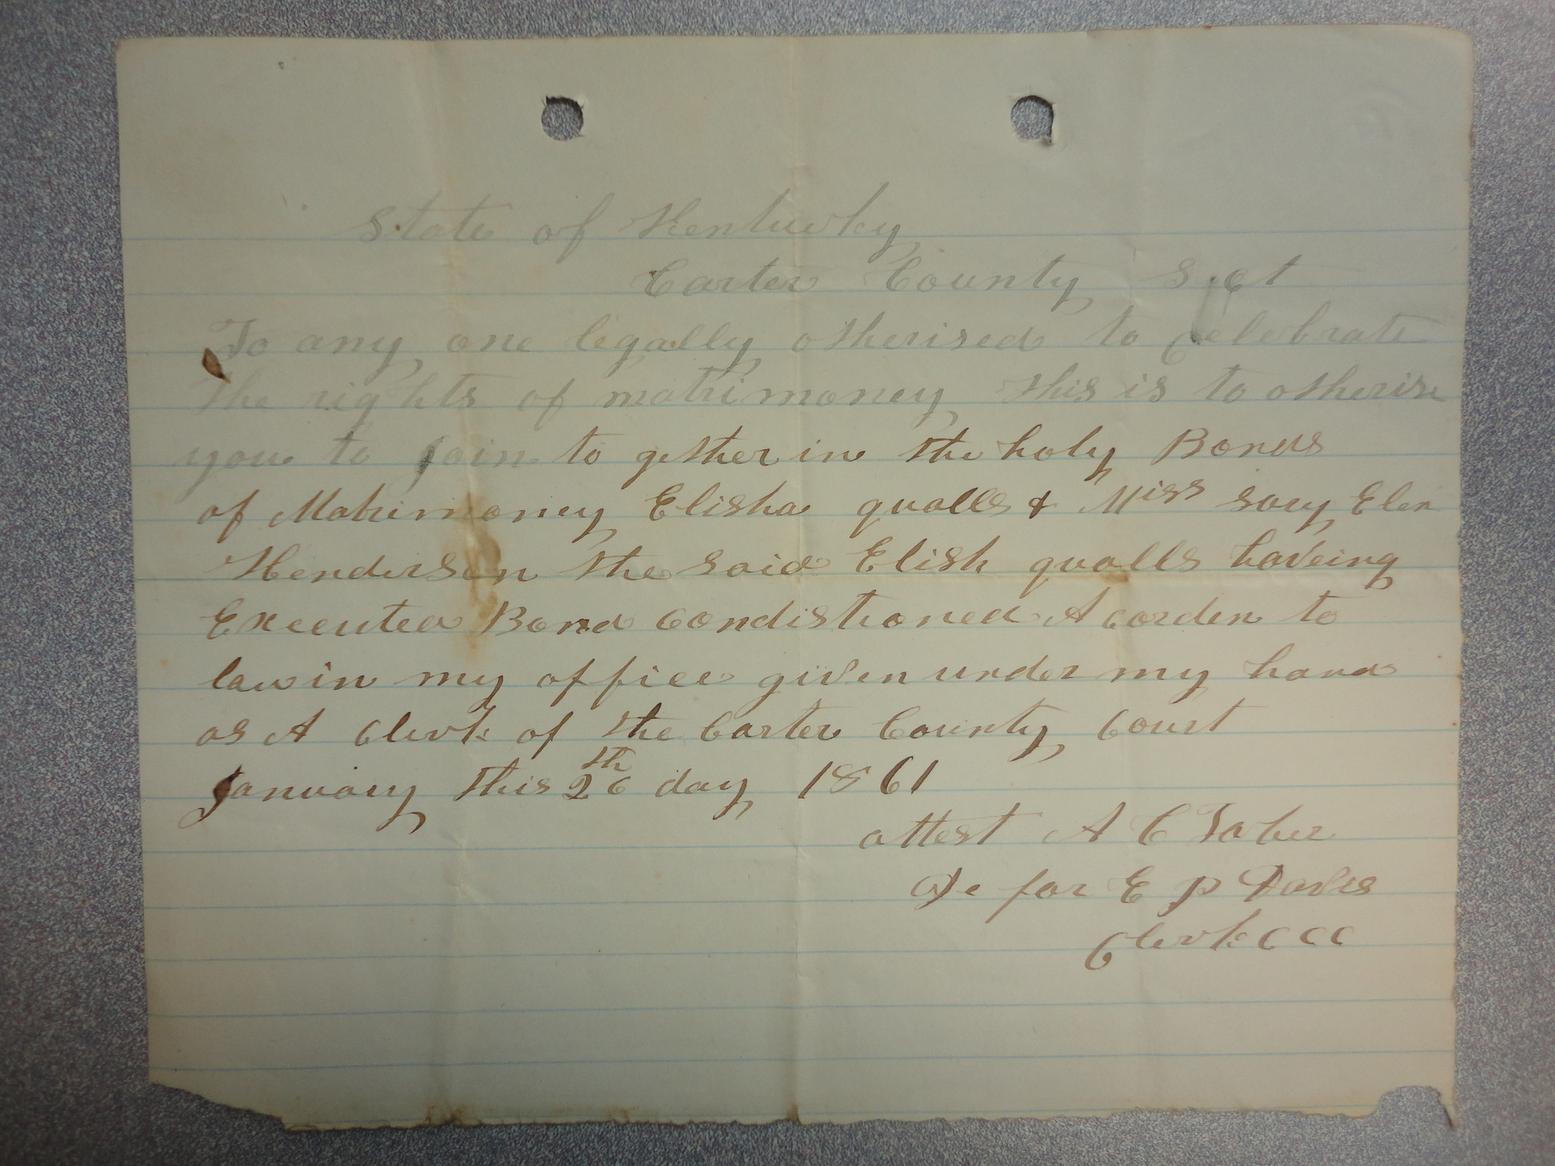 State of Kentucky
Carter County Sct
To any one legally otherised to celebrate
the rights of matrimoney this is to otherise
you to join to gether in the holy Bonds
of Matrimoney Elisha qualls & Miss Sary Elen
Henderson the said Elish qualls haveing
Executed Bond condistioned Acorden to
law in my office given under my hand
as A Clerk of the Carter County Court
January this 26th day 1861
attest A C Taber
De for E P Davis
Clerk C C C